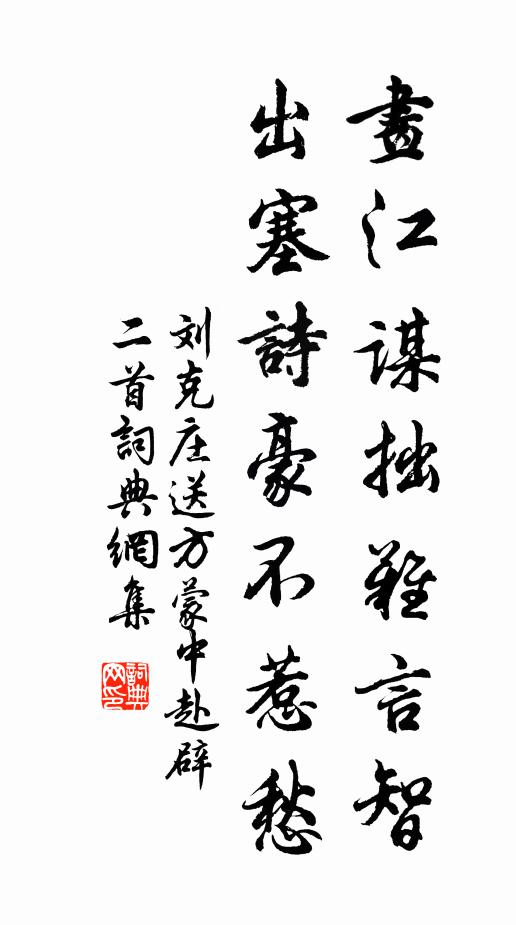 畫江謀拙難言智
出塞詩豪不惹愁
刘克庄送方蒙中赴辟
二首詞典網集
詞典网印